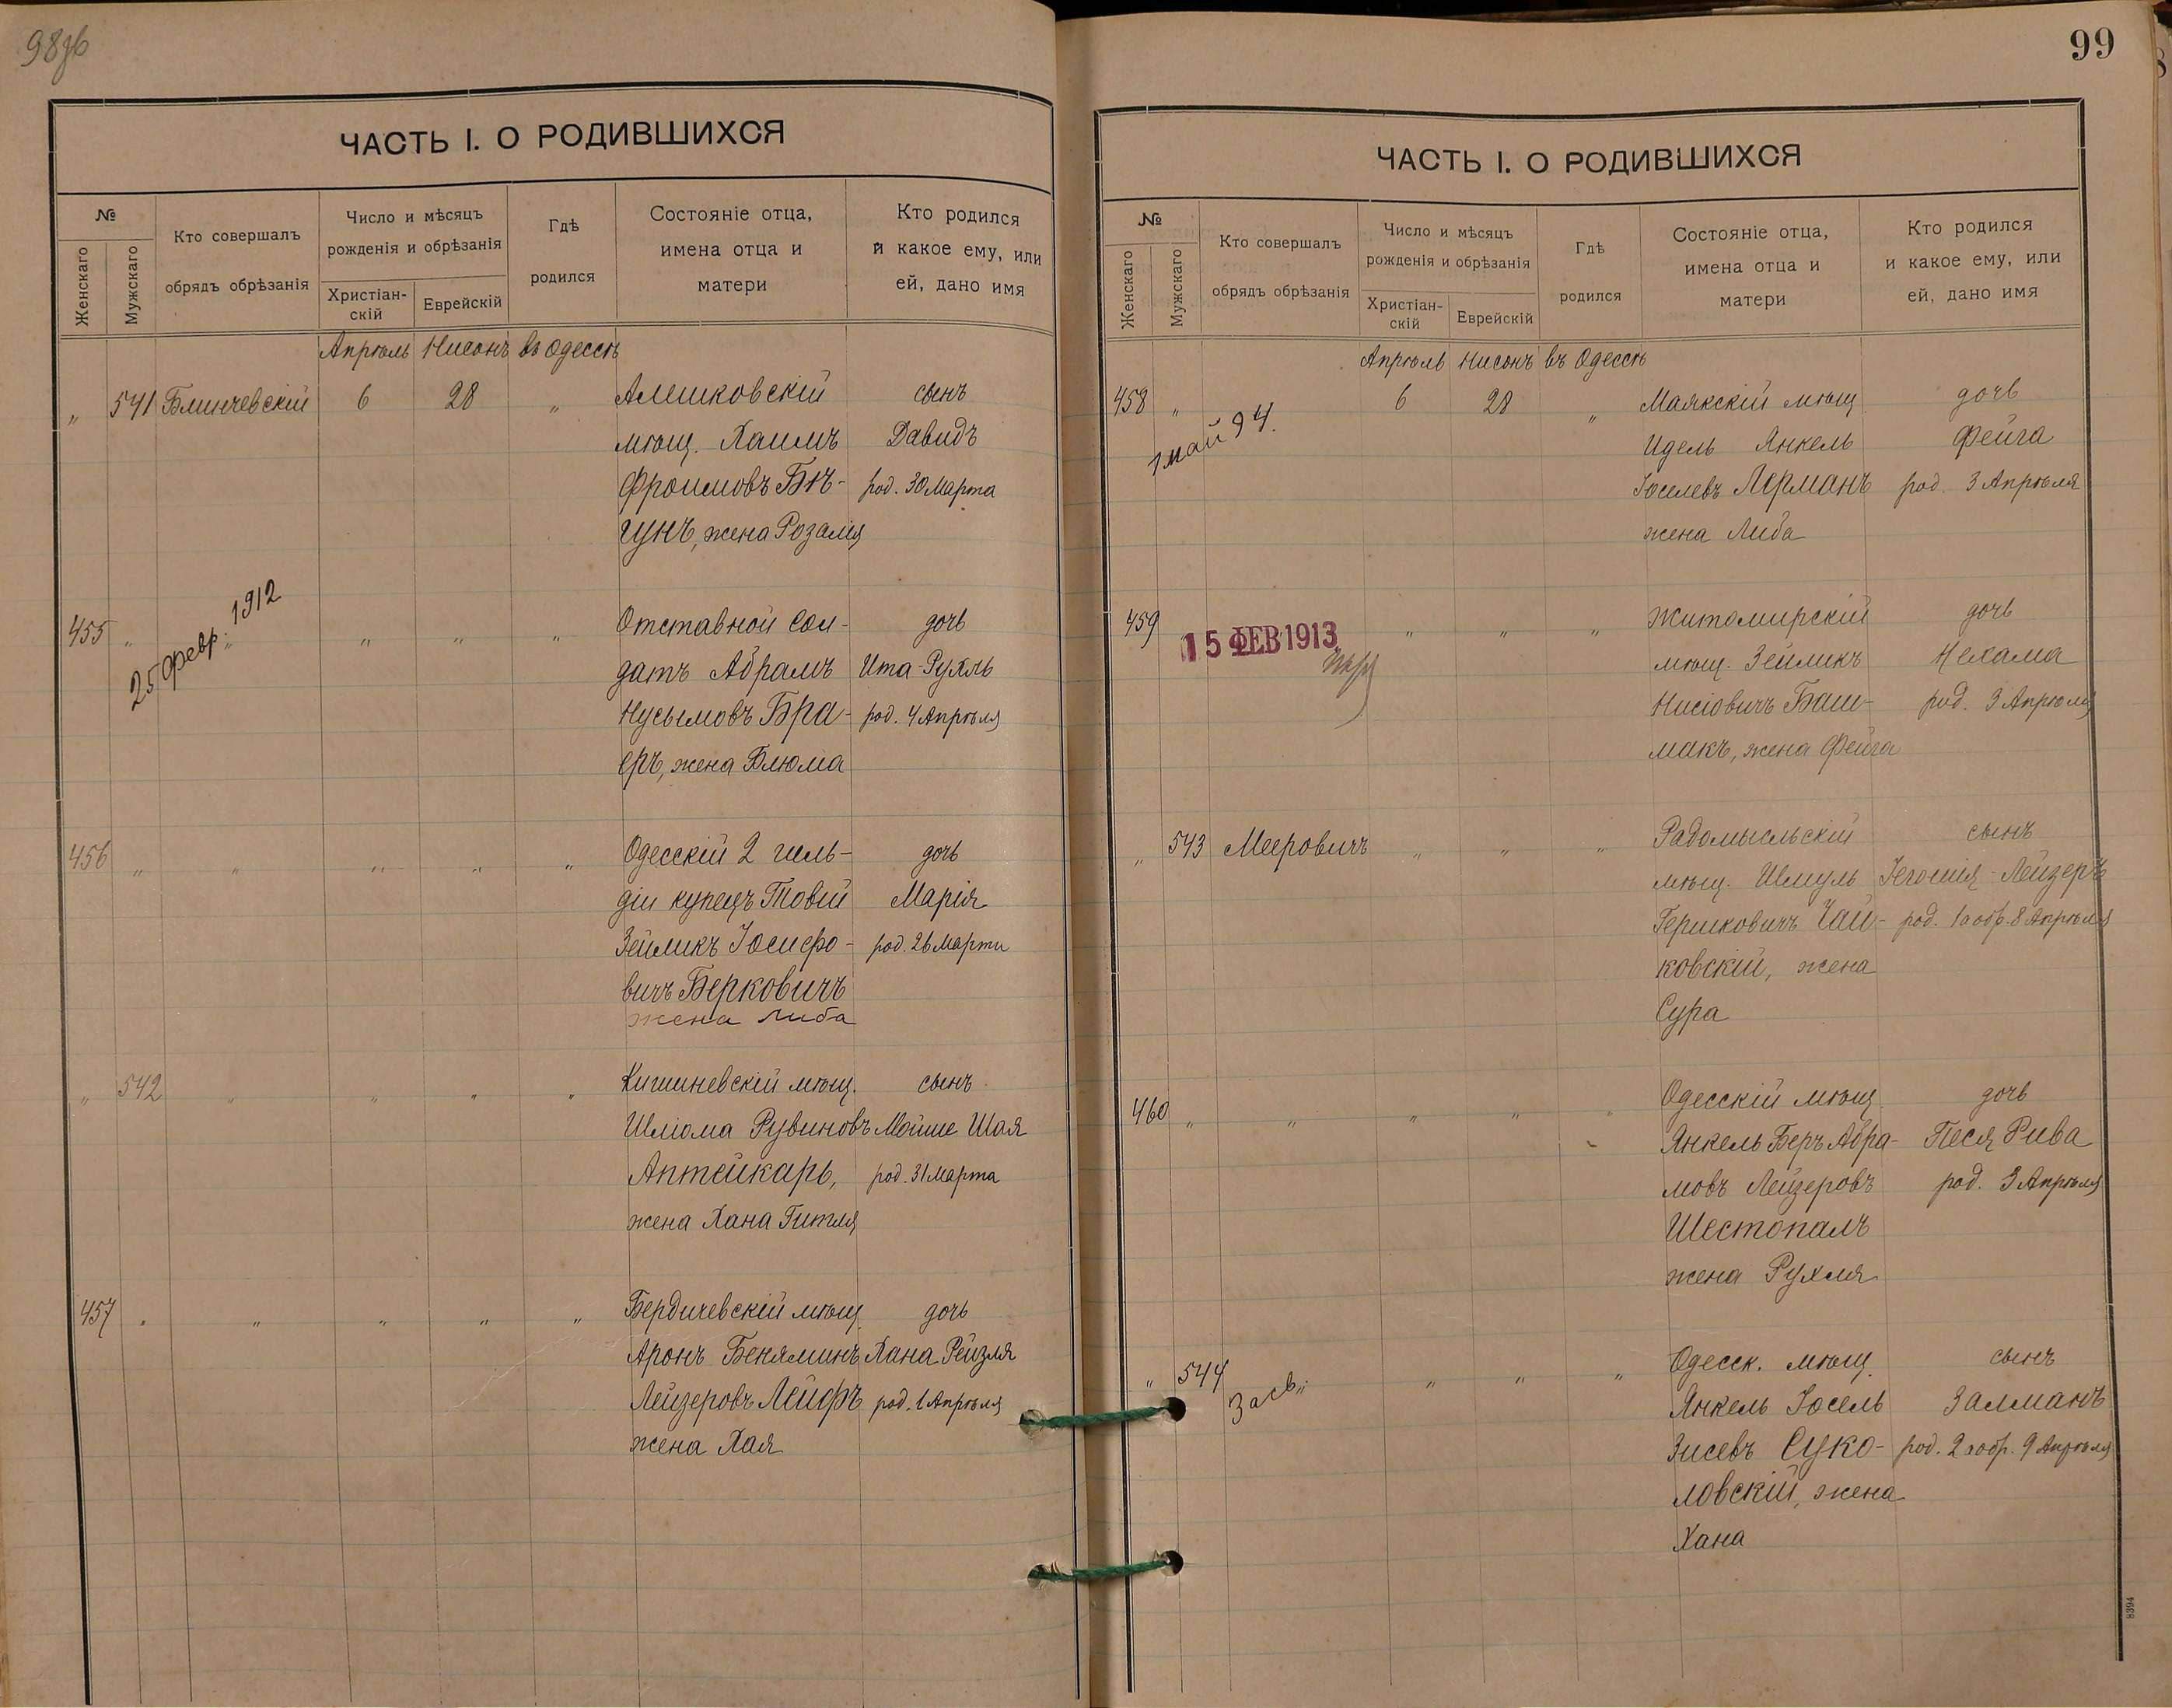 98об
ЧАСТЬ I. О РОДИВШИХСЯ
№
Женскаго
Мужскаго
Кто совершалъ
обрядъ обрѣзанія
Число и мѣсяцъ
рожденія и обрѣзанія
Христіан-
скій
Еврейскій
Гдѣ
родился
Состояніе отца,
имена отца и
матери
Кто родился
и какое ему, или
ей, дано имя
Апрѣль Нисонъ въ Одессѣ
„ 541 Блинчевскій 6 28 „ Алешковскій сынъ
мѣщ. Хаимъ Давидъ
Фроимовъ Бѣ- род. 30 Марта
гунъ, жена Розалія
455 „ „ „ „ „ Отставной сол- дочь
25 февр. 1912
датъ Абрамъ Ита-Рухль
Нусымовъ Бра- род. 4 Апрѣля
еръ, жена Блюма
456 „ „ „ „ „ Одесскій 2 гиль- дочь
діи купецъ Товій Марія
Зейликъ Іосифо- род. 26 Марта
вичъ Берковичъ
жена Либа
„ 542 „ „ „ „ Кишиневскій мѣщ. сынъ
Шліома Рувиновъ Мойше Шая
Аптейкарь, род. 31 Марта
жена Хана Гитля
457 „ „ „ „ „ Бердичевскій мѣщ. дочь
Аронъ Беняминъ Хана Рейзля
Лейзеровъ Лейфъ род. 1 Апрѣля
жена Хая
99
ЧАСТЬ I. О РОДИВШИХСЯ
№
Женскаго
Мужскаго
Кто совершалъ
обрядъ обрѣзанія
Число и мѣсяцъ
рожденія и обрѣзанія
Христіан-
скій
Еврейскій
Гдѣ
родился
Состояніе отца,
имена отца и
матери
Кто родился
и какое ему, или
ей, дано имя
Апрѣль Нисонъ въ Одессѣ
458 „ 6 28 „ Маякскій мѣщ. дочь
май 94.
Идель Янкель Фейга
Іоселевъ Лерманъ род. 3 Апрѣля
жена Либа
459 „ „ „ Житомирскій дочь
15 ФЕВ 1913
мѣщ. Зейликъ Нехама
Нисіовичъ Баш- род. 3 Апрѣля
макъ, жена Фейга
„ 543 Мееровичъ „ „ „ Радомысльскій сынъ
мѣщ. Шмуль Іегошія-Лейзеръ
Гершковичъ Чай- род. 1 а обр. 8 Апрѣля
ковскій, жена
Сура
460 „ „ „ „ „ Одесскій мѣщ. дочь
Янкель Беръ Абра- Песя Рива
мовъ Лейзеровъ род. 3 Апрѣля
Шестопалъ
жена Рухля
„ 544 „ „ „ „ Одесск. мѣщ. сынъ
Янкель Іосель Залманъ
Зисевъ Суко- род. 2 а обр. 9 Апрѣля
ловскій, жена
Хана
8394